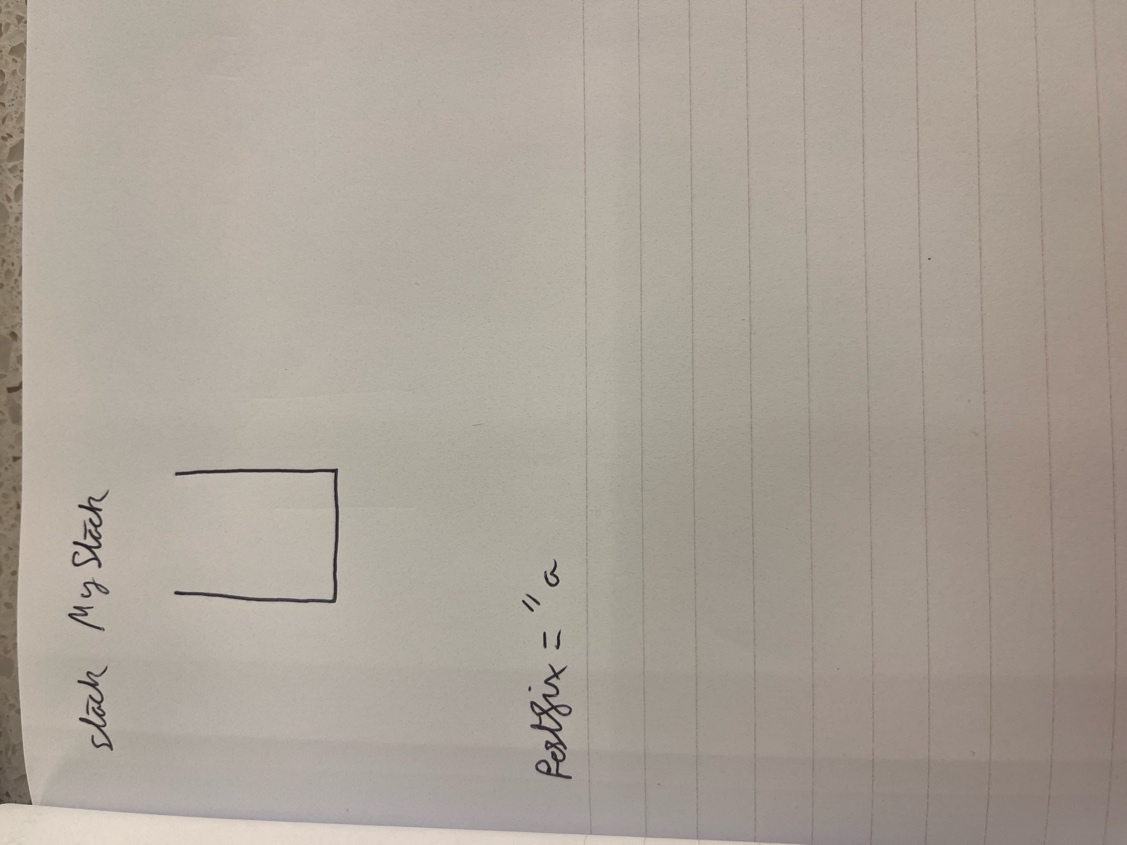 stack My Stack
Postfix = " a